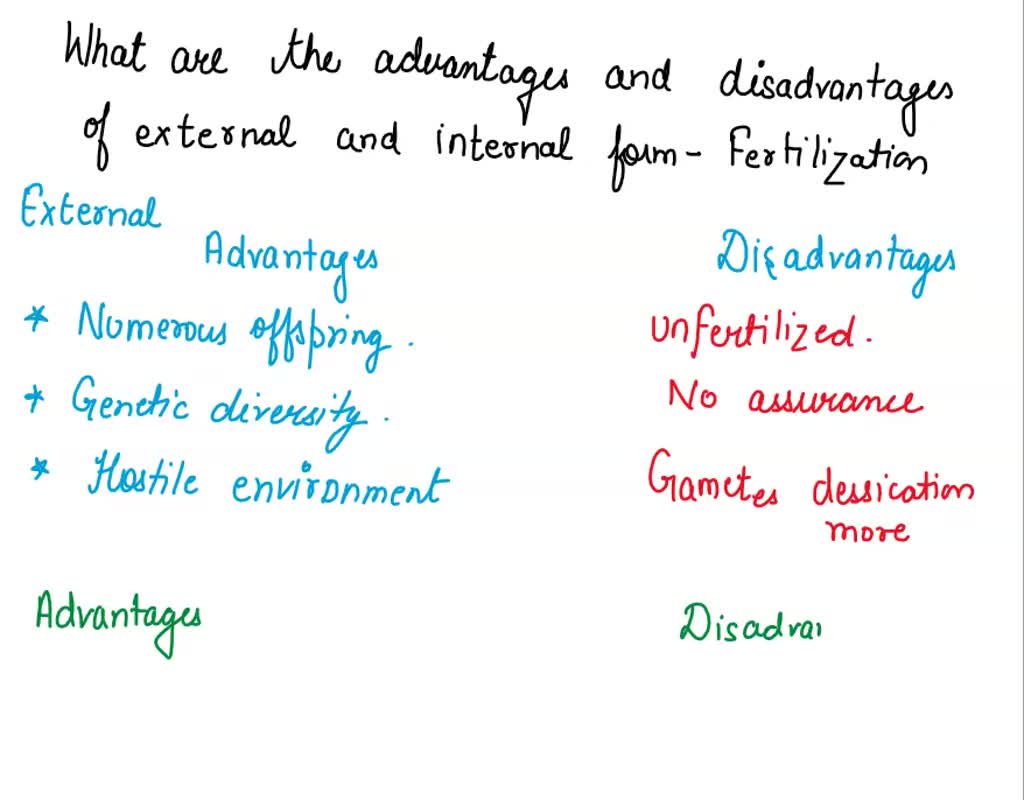 What are the advantages and disadvantages
of external and internal form - Fertilization
External
Advantages Disadvantages
* Numerous offspring. unfertilized.
* Genetic diversity. No assurance
* Hostile environment Gametes dessication
more
Advantages Disadvai